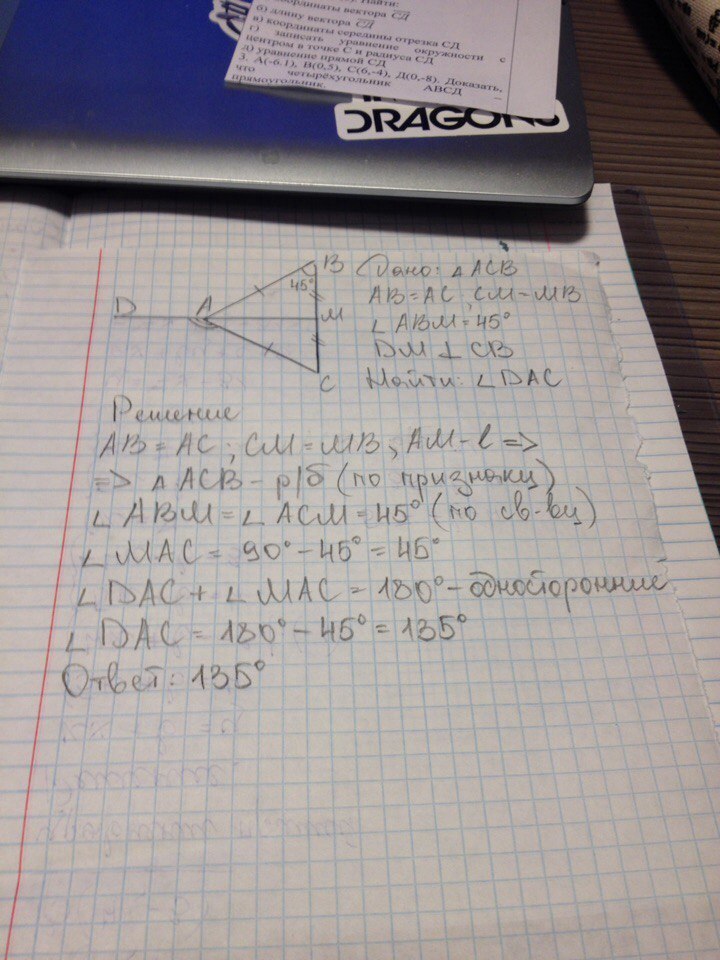 координаты вектора СД
б) длину вектора СД
в) координаты середины отрезка СД
записать уравнение окружности с
центром в точке С и радиуса СД
д) уравнение прямой СД
3. А(-6,1), В(0,5), С(6,-4), Д(0,-8). Доказать,
что четырёхугольник АВСД –
прямоугольник.
DRAGONS
B
45°
D A M
C
Дано: △ACB
AB=AC, CM=MB
∠ABM=45°
DM⊥CB
Найти: ∠DAC
Решение
AB=AC; CM=MB; AM-l =>
=> △ACB - р/б (по признаку)
∠ABM=∠ACM=45° (по св-ву)
∠MAC = 90°-45°=45°
∠DAC+∠MAC = 180°-односторонние
∠DAC=180°-45°=135°
Ответ: 135°